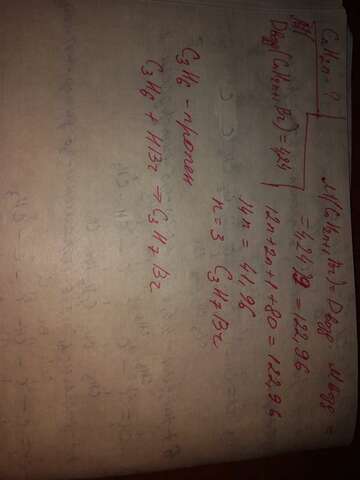 CnH2n - ?
Dвозд(CnH2n+1Br) = 4,24
M(CnH2n+1Br) = Dвозд · Mвозд =
= 4,24 · 29 = 122,96
12n + 2n + 1 + 80 = 122,96
14n = 41,96
n = 3 C3H7Br
C3H6 - пропен
C3H6 + HBr → C3H7Br